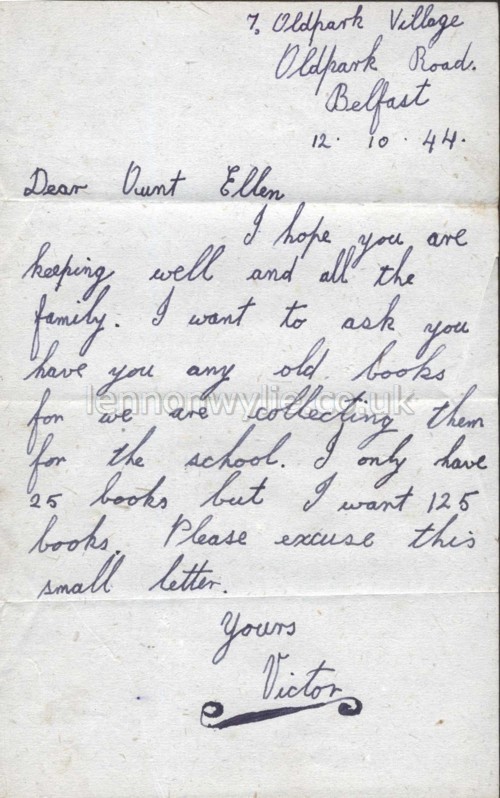 7, Oldpark Village
Oldpark Road.
Belfast
12. 10. 44.
Dear Aunt Ellen
I hope you are
keeping well and all the
family. I want to ask you
have you any old books
lennonwylie.co.uk
for we are collecting them
for the school. I only have
25 books but I want 125
books. Please excuse this
small letter.
Yours
Victor